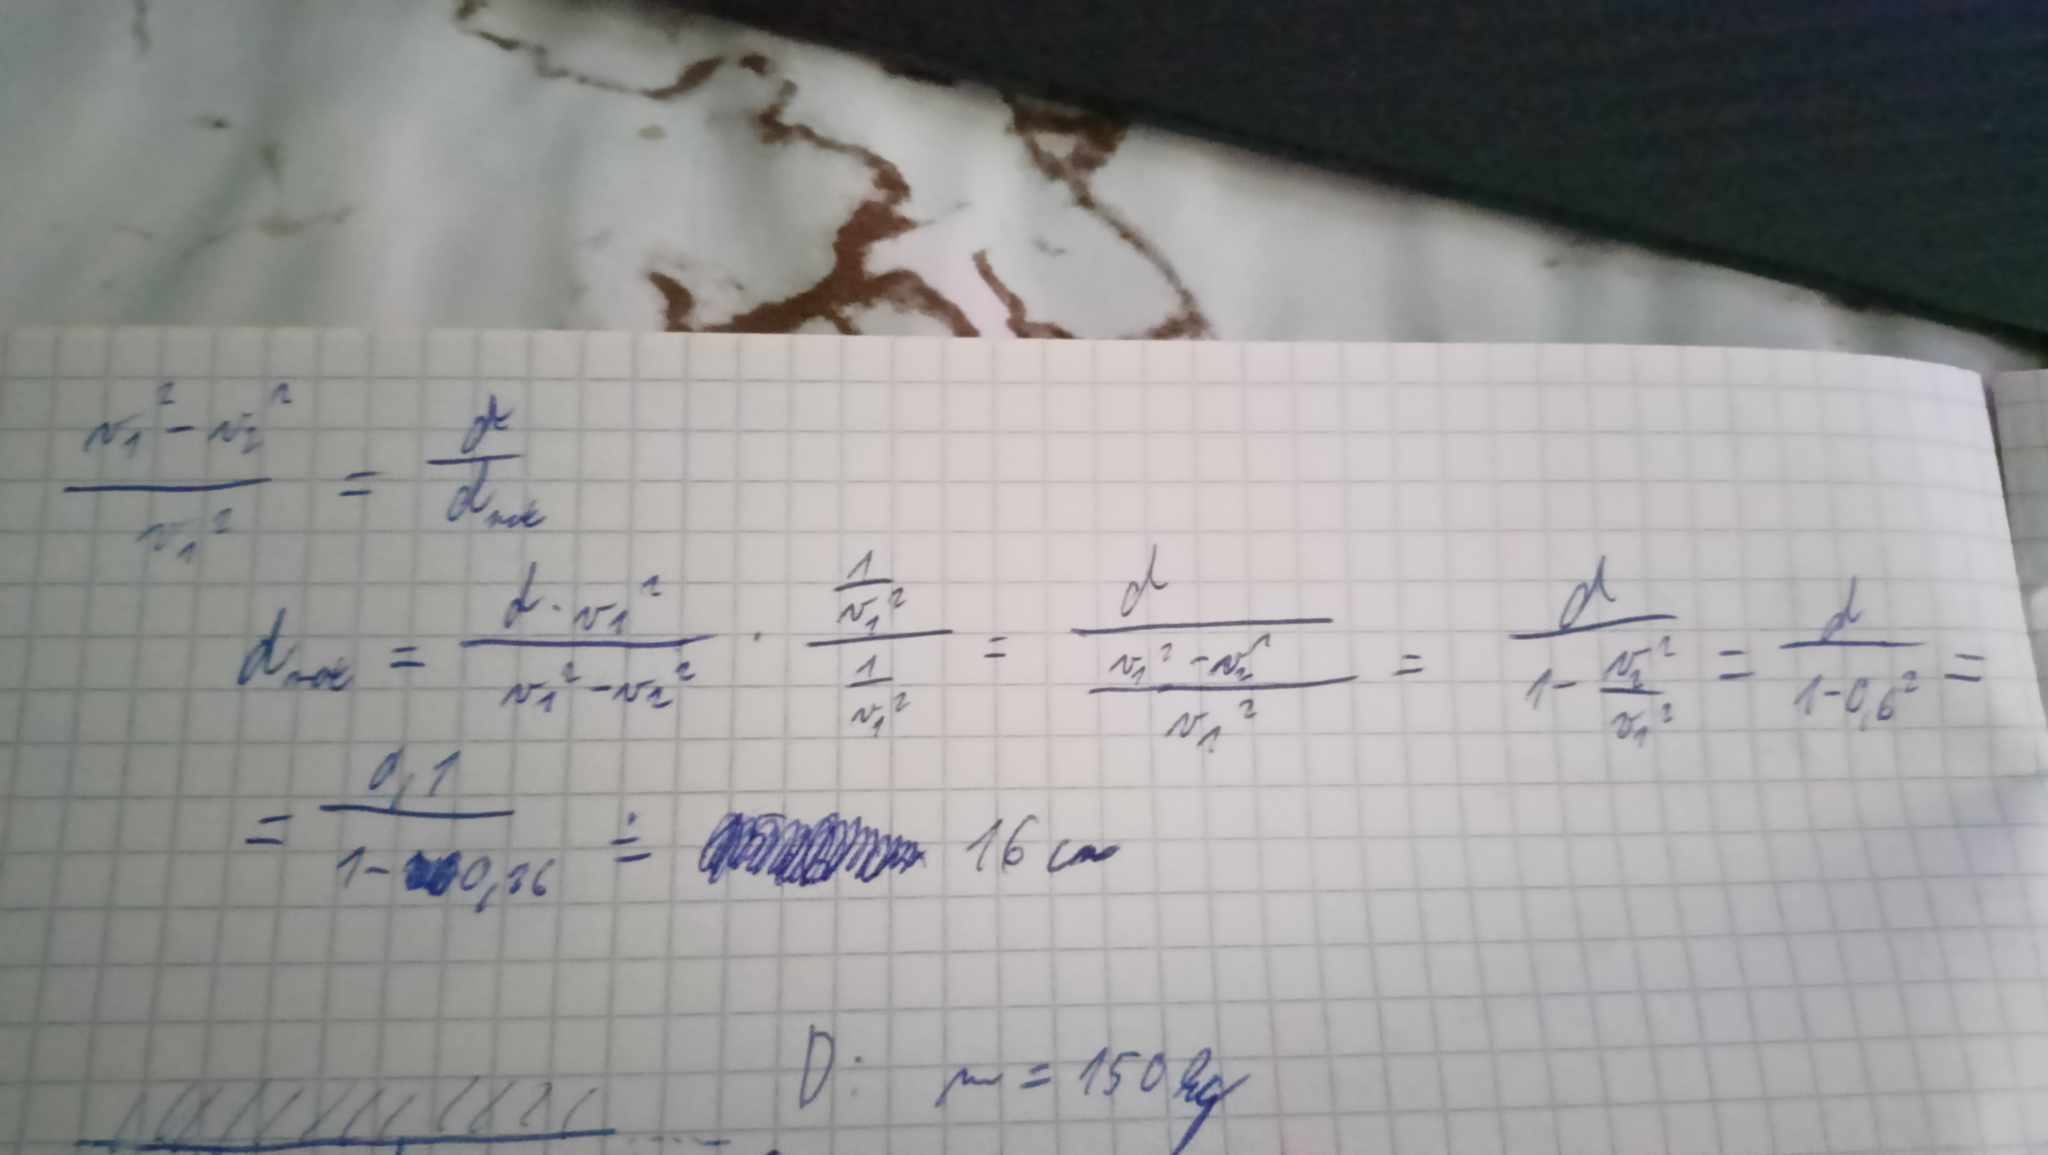 (v₁² - v₂²) / v₁² = d / d_max
d_max = (d · v₁²) / (v₁² - v₂²) · (1/v₁²) / (1/v₁²) = d / ((v₁² - v₂²) / v₁²) = d / (1 - v₂²/v₁²) = d / (1 - 0,6²) =
= 0,1 / (1 - 0,36) ≐ 16 cm
D: m = 150 kg